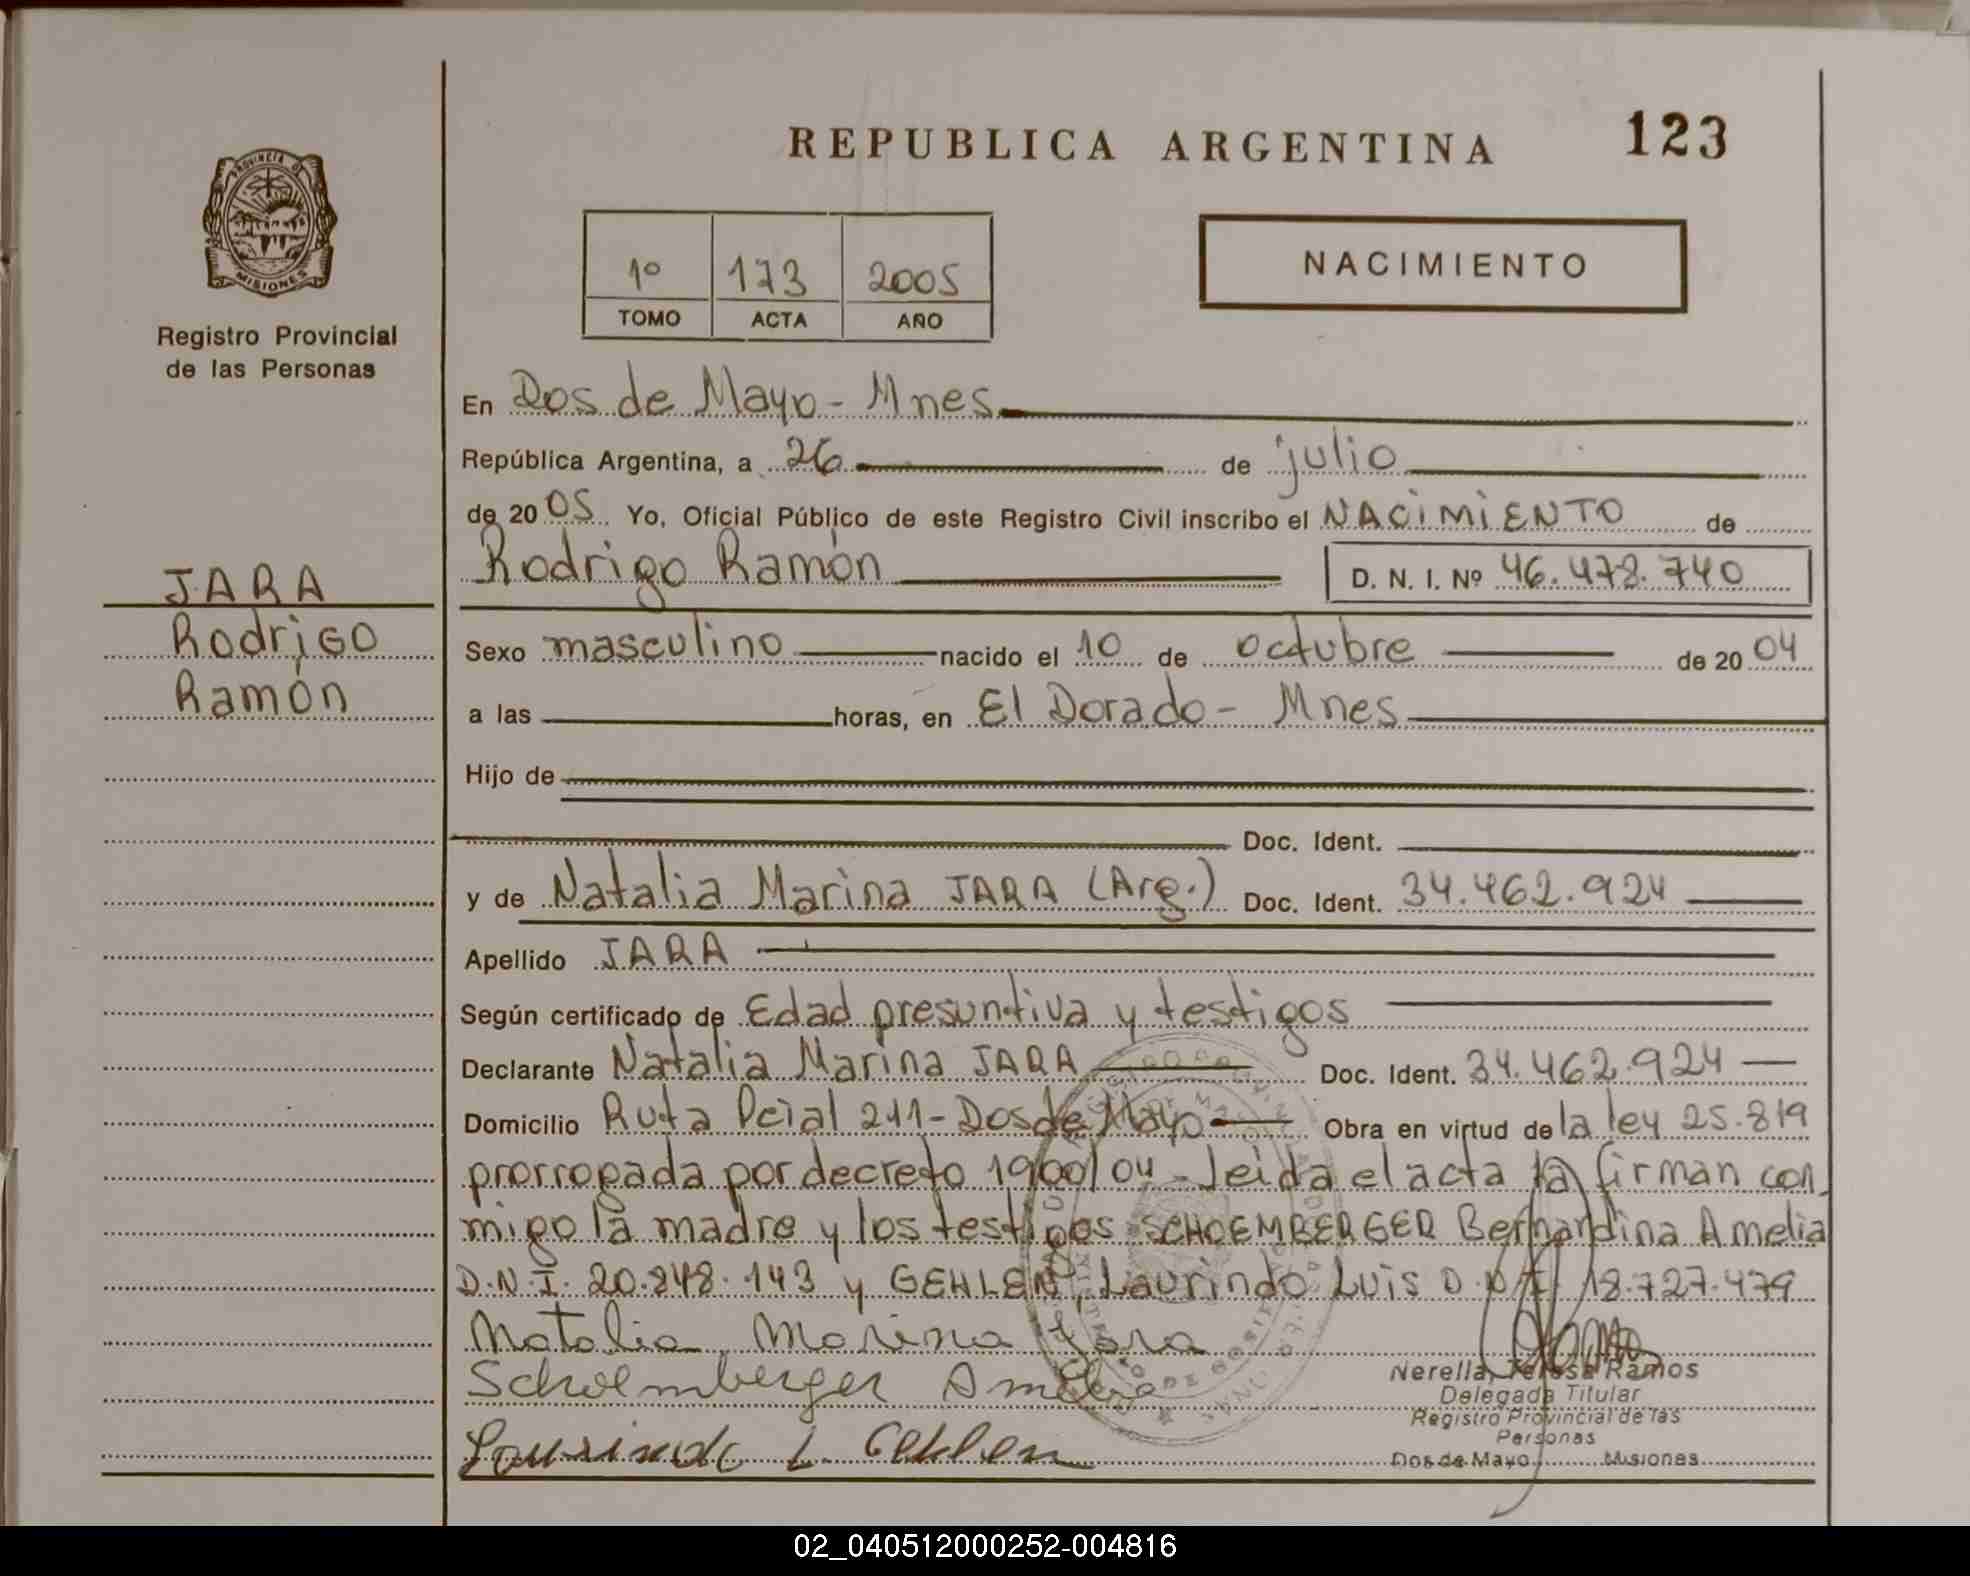 REPUBLICA ARGENTINA
123
PROVINCIA D
MISIONES
Registro Provincial
de las Personas
1º 173 2005
TOMO ACTA AÑO
NACIMIENTO
En Dos de Mayo - Mnes
República Argentina, a 26 de julio
de 2005 Yo, Oficial Público de este Registro Civil inscribo el NACIMIENTO de
Rodrigo Ramón
D. N. I. Nº 46.478.740
JARA
Rodrigo
Ramón
Sexo masculino nacido el 10 de octubre de 2004
a las horas, en El Dorado - Mnes
Hijo de
Doc. Ident.
y de Natalia Marina JARA (Arg.) Doc. Ident. 34.462.924
Apellido JARA
Según certificado de Edad presuntiva y testigos
Declarante Natalia Marina JARA Doc. Ident. 34.462.924
Domicilio Ruta Pcial 211 - Dos de Mayo Obra en virtud de la ley 25.819
prorrogada por decreto 1900/04 - leida el acta la firman con
migo la madre y los testigos SCHOEMBERGER Bernardina Amelia
D.N.I. 20.848.143 y GEHLEN, Laurindo Luis D.N.I. 18.727.479
Natalia Marina Jara
Schoemberger Amelia
Laurindo L. Gehlen
Nerella, Teresa Ramos
Delegada Titular
Registro Provincial de las
Personas
Dos de Mayo Misiones
02_040512000252-004816